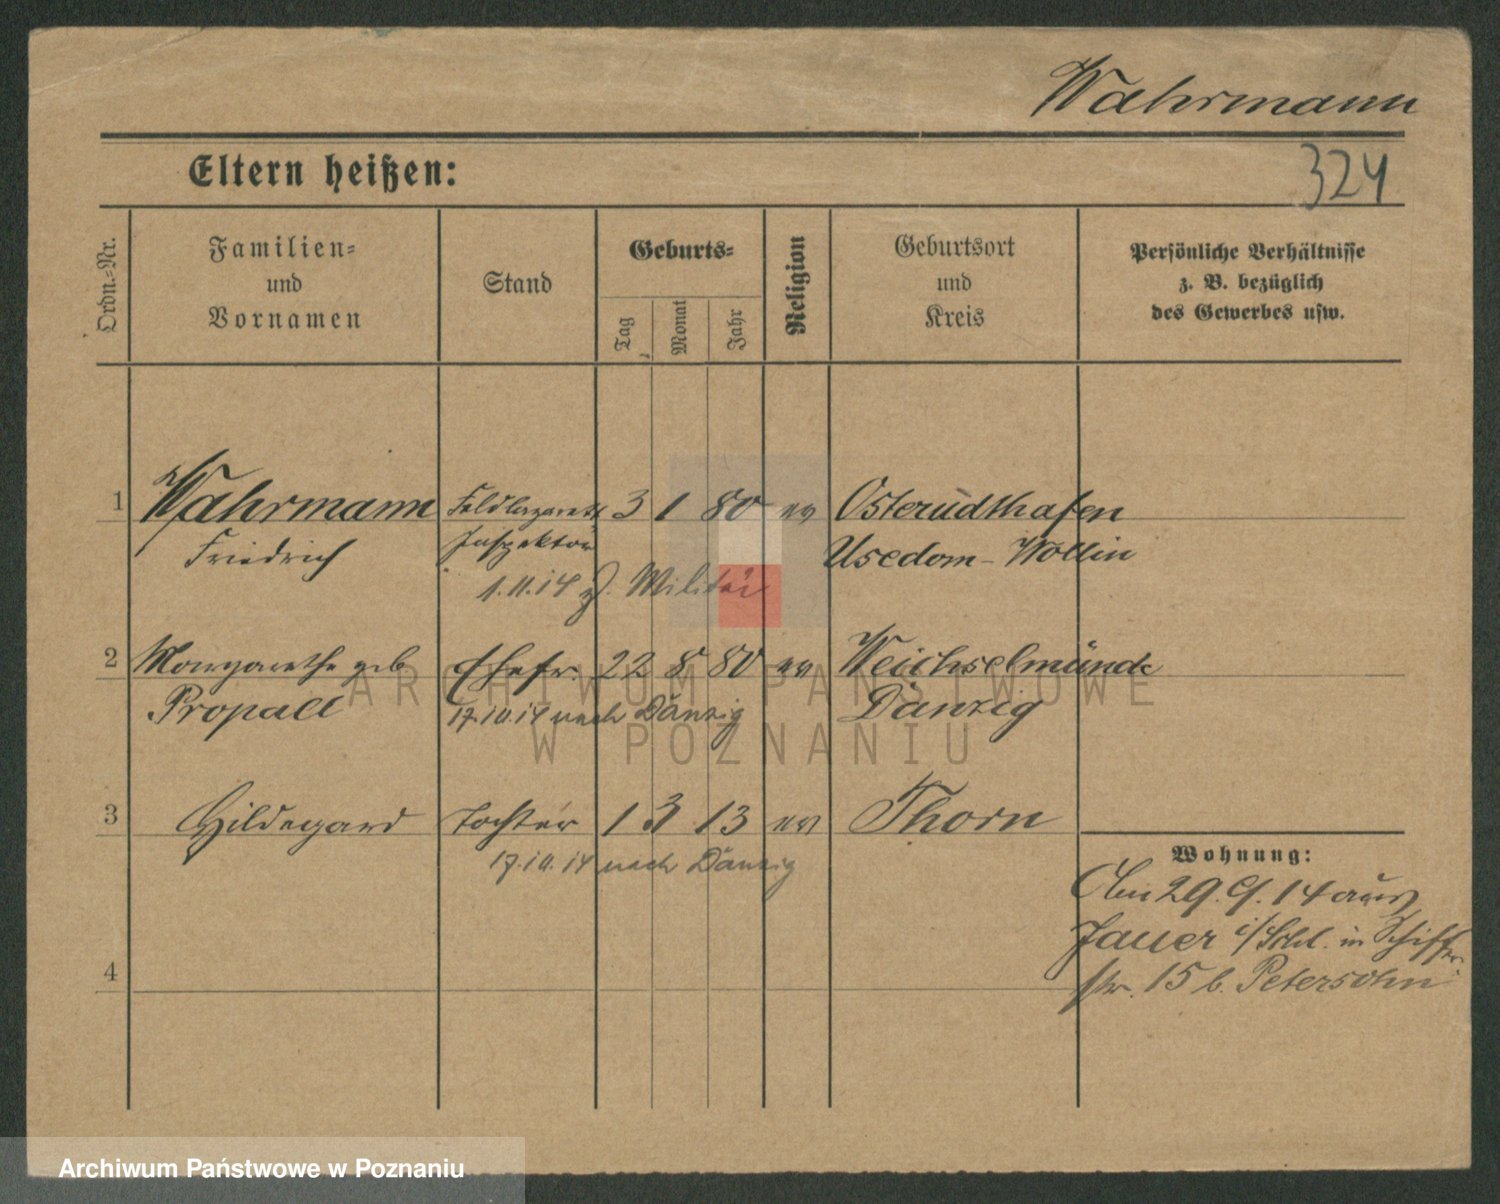 Wahrmann
324
Eltern heißen:
Ordn.-Nr.
Familien-
und
Vornamen
Stand
Geburts-
Tag
Monat
Jahr
Religion
Geburtsort
und
Kreis
Persönliche Verhältnisse
z. B. bezüglich
des Gewerbes usw.
1 Wahrmann Feldlazarett 3 1 80 ev
Friedrich Inspektor Usedom-Wollin
1.11.14 z. Militär
2 Margarethe geb Ehefr. 22 8 80 ev Weichselmünde
Propall 17.10.14 nach Danzig Danzig
3 Hildegard Tochter 1 3 13 ev Thorn
17.10.14 nach Danzig
Wohnung:
Am 29.9.14 aus
Jauer i/Schl. in Schiffer
4
str. 15 b. Petersohn
ARCHIWUM PAŃSTWOWE
W POZNANIU
Archiwum Państwowe w Poznaniu